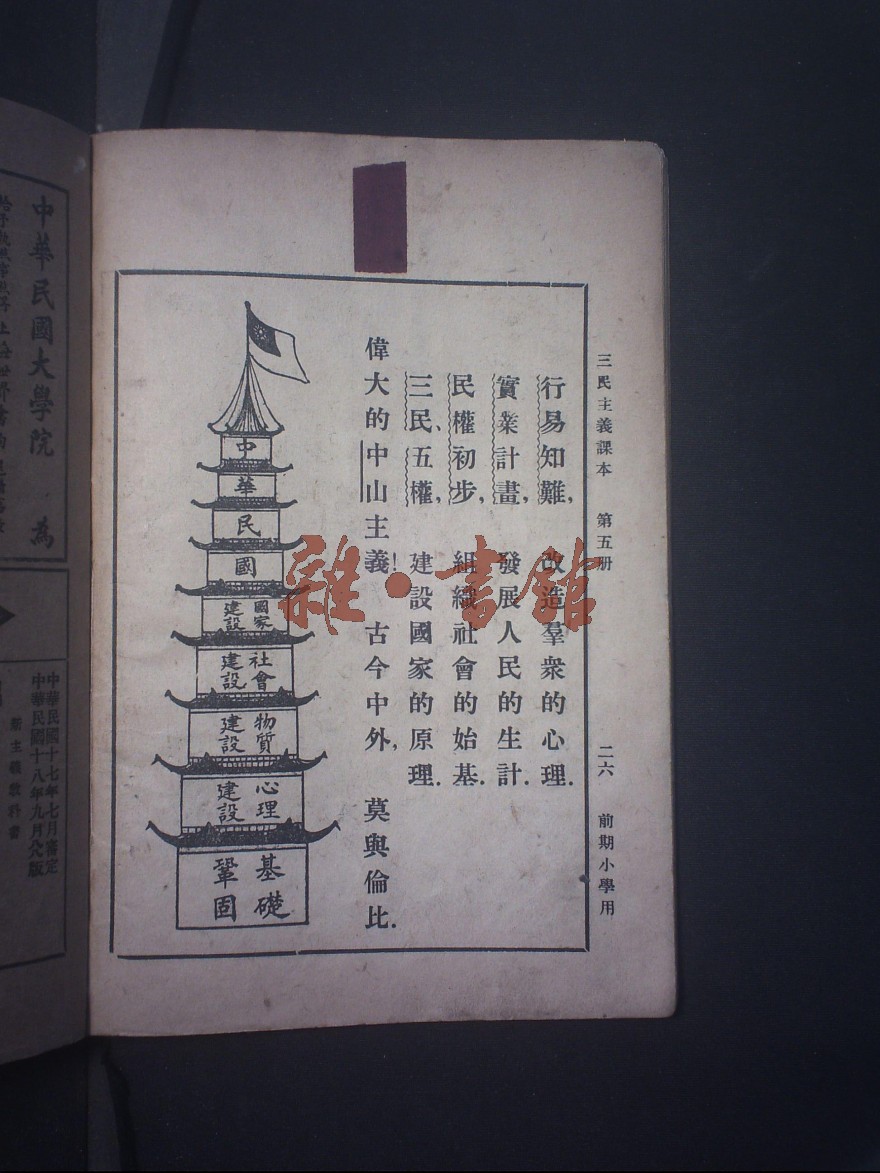 三民主義課本　第五册　二六　前期小學用
行易知難，改造羣衆的心理．
實業計畫，發展人民的生計．
民權初步，組織社會的始基．
三民、五權，建設國家的原理．
偉大的中山主義！古今中外，莫與倫比．
中
華
民
國
國家建設
社會建設
物質建設
心理建設
基礎鞏固
雜·書館
中華民國大學院　為
中華民國十七年七月審定
中華民國十八年九月　版
新主義教科書